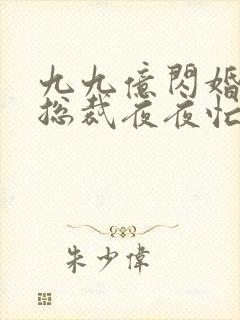 九九億閃婚
總裁夜夜忙
朱少偉